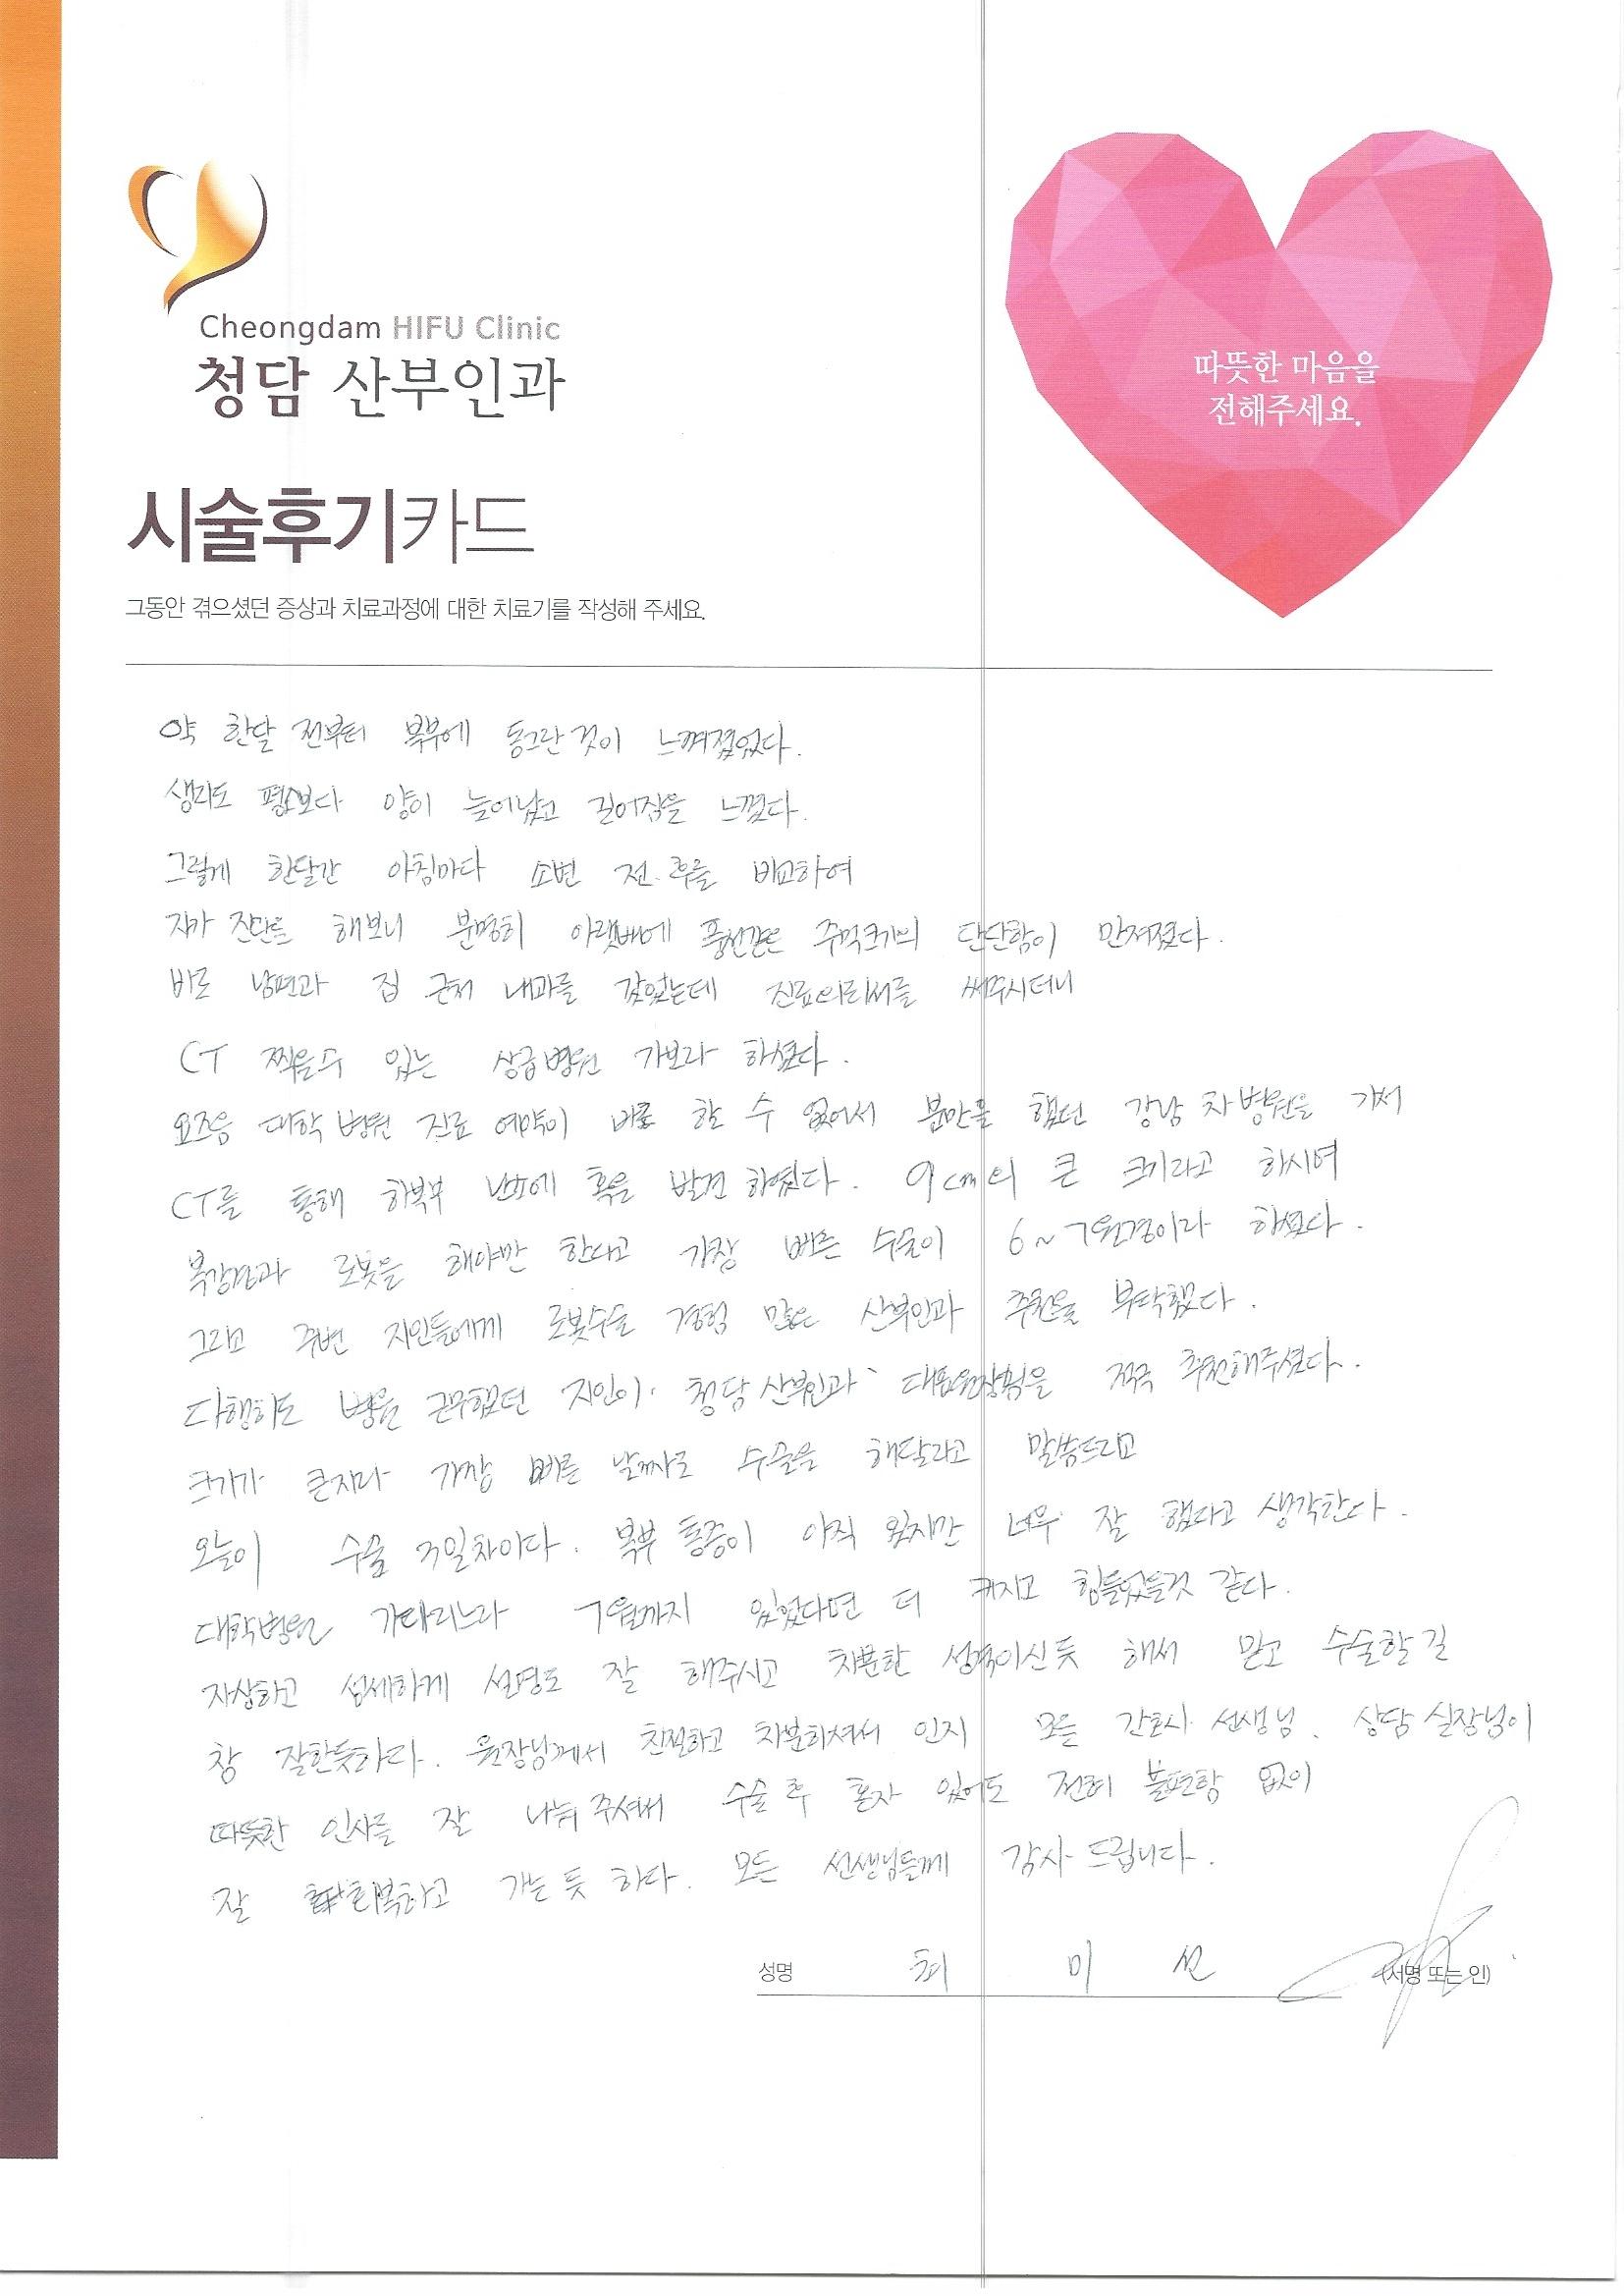 Cheongdam HIFU Clinic
청담 산부인과
따뜻한 마음을
전해주세요.
시술후기카드
그동안 겪으셨던 증상과 치료과정에 대한 치료기를 작성해 주세요.
약 한달 전부터 복부에 동그란 것이 느껴졌었다.
생리도 평소보다 양이 늘어났고 길어짐을 느꼈다.
그렇게 한달간 아침마다 소변 전.후를 비교하여
자가 진단을 해보니 분명히 아랫배에 풍선같은 주먹크기의 단단함이 만져졌다.
바로 남편과 집 근처 내과를 갔었는데 진료의뢰서를 써주시더니
CT 찍을수 있는 상급병원 가보라 하셨다.
요즈음 대학 병원 진료 예약이 바로 할 수 없어서 분만을 했던 강남 차병원을 가서
CT를 통해 하복부 난소에 혹을 발견 하였다. 9cm의 큰 크기라고 하시며
복강경과 로봇을 해야만 한다고 가장 빠른 수술이 6~7월경이라 하셨다.
그리고 주변 지인들에게 로봇수술 경험 많은 산부인과 추천을 부탁했다.
다행히도 병원 근무했던 지인이 청담 산부인과 대표원장님을 적극 추천해주셨다.
크기가 큰지라 가장 빠른 날짜로 수술을 해달라고 말씀드리고
오늘이 수술 3일차이다. 복부 통증이 아직 있지만 너무 잘 했다고 생각한다.
대학병원 기다리느라 7월까지 있었다면 더 커지고 힘들었을것 같다.
자상하고 섬세하게 설명도 잘 해주시고 차분한 성격이신 듯 해서 믿고 수술할 길
참 잘한듯하다. 원장님께서 친절하고 차분하셔서 인지 모든 간호사 선생님. 상담 실장님이
따뜻한 인사를 잘 나눠 주셔서 수술 후 혼자 있어도 전혀 불편함 없이
잘 회복하고 가는 듯 하다. 모든 선생님들께 감사 드립니다.
성명 최 미 선 (서명 또는 인)